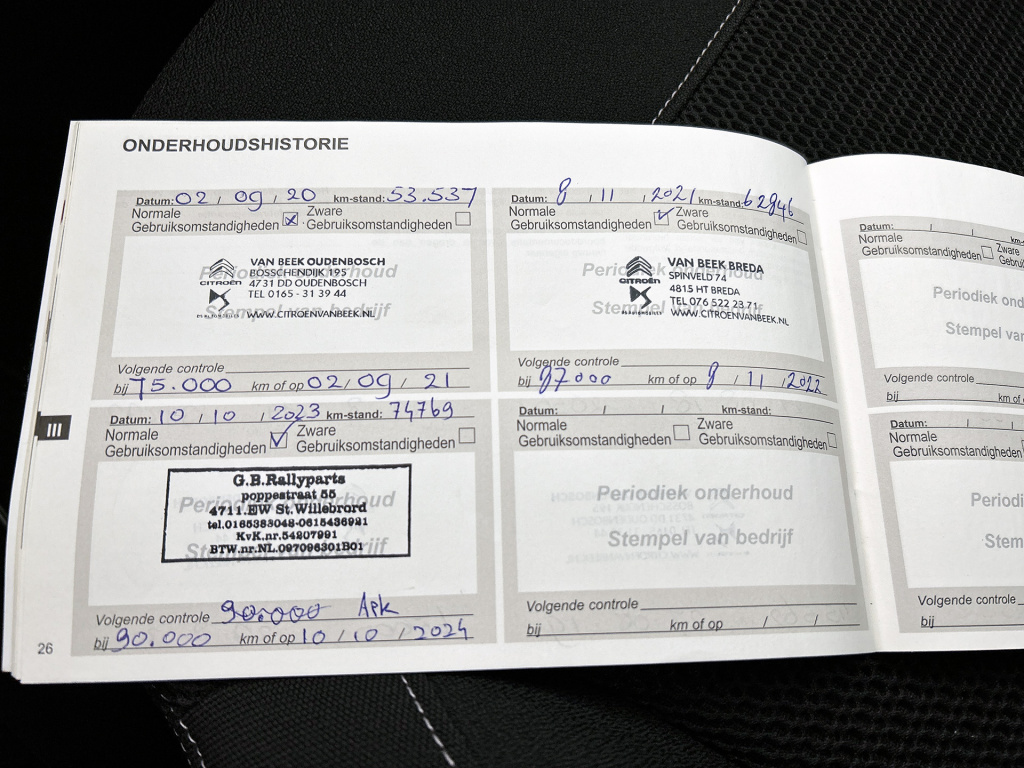 ONDERHOUDSHISTORIE
Datum: 02 / 09 / 20 km-stand: 53.537
Normale Gebruiksomstandigheden Zware Gebruiksomstandigheden
Periodiek onderhoud
Stempel van bedrijf
VAN BEEK OUDENBOSCH
BOSSCHENDIJK 195
CITROËN 4731 DD OUDENBOSCH
TEL 0165 - 31 39 44
WWW.CITROENVANBEEK.NL
Volgende controle
bij 75.000 km of op 02 / 09 / 21
Datum: 8 / 11 / 2021 km-stand: 62846
Normale Gebruiksomstandigheden Zware Gebruiksomstandigheden
Periodiek onderhoud
Stempel van bedrijf
VAN BEEK BREDA
SPINVELD 74
CITROËN 4815 HT BREDA
TEL 076 522 23 71
WWW.CITROENVANBEEK.NL
Volgende controle
bij 87000 km of op 8 / 11 / 2022
Datum: 10 / 10 / 2023 km-stand: 74769
Normale Gebruiksomstandigheden Zware Gebruiksomstandigheden
Periodiek onderhoud
Stempel van bedrijf
G.B.Rallyparts
poppestraat 55
4711.EW St.Willebrord
tel.0165383048-0615436921
KvK.nr.54207991
BTW.nr.NL.097096301B01
Volgende controle 90.000 APK
bij 90.000 km of op 10 / 10 / 2024
Datum: / / km-stand:
Normale Gebruiksomstandigheden Zware Gebruiksomstandigheden
Periodiek onderhoud
Stempel van bedrijf
Volgende controle
bij km of op / /
III
26
Datum: / /
Normale Gebruiksomstandigheden Zware
Periodiek
Stempel van
Volgende controle
bij km of
Datum: / /
Normale Gebruiksomstandigheden
Volgende controle
bij